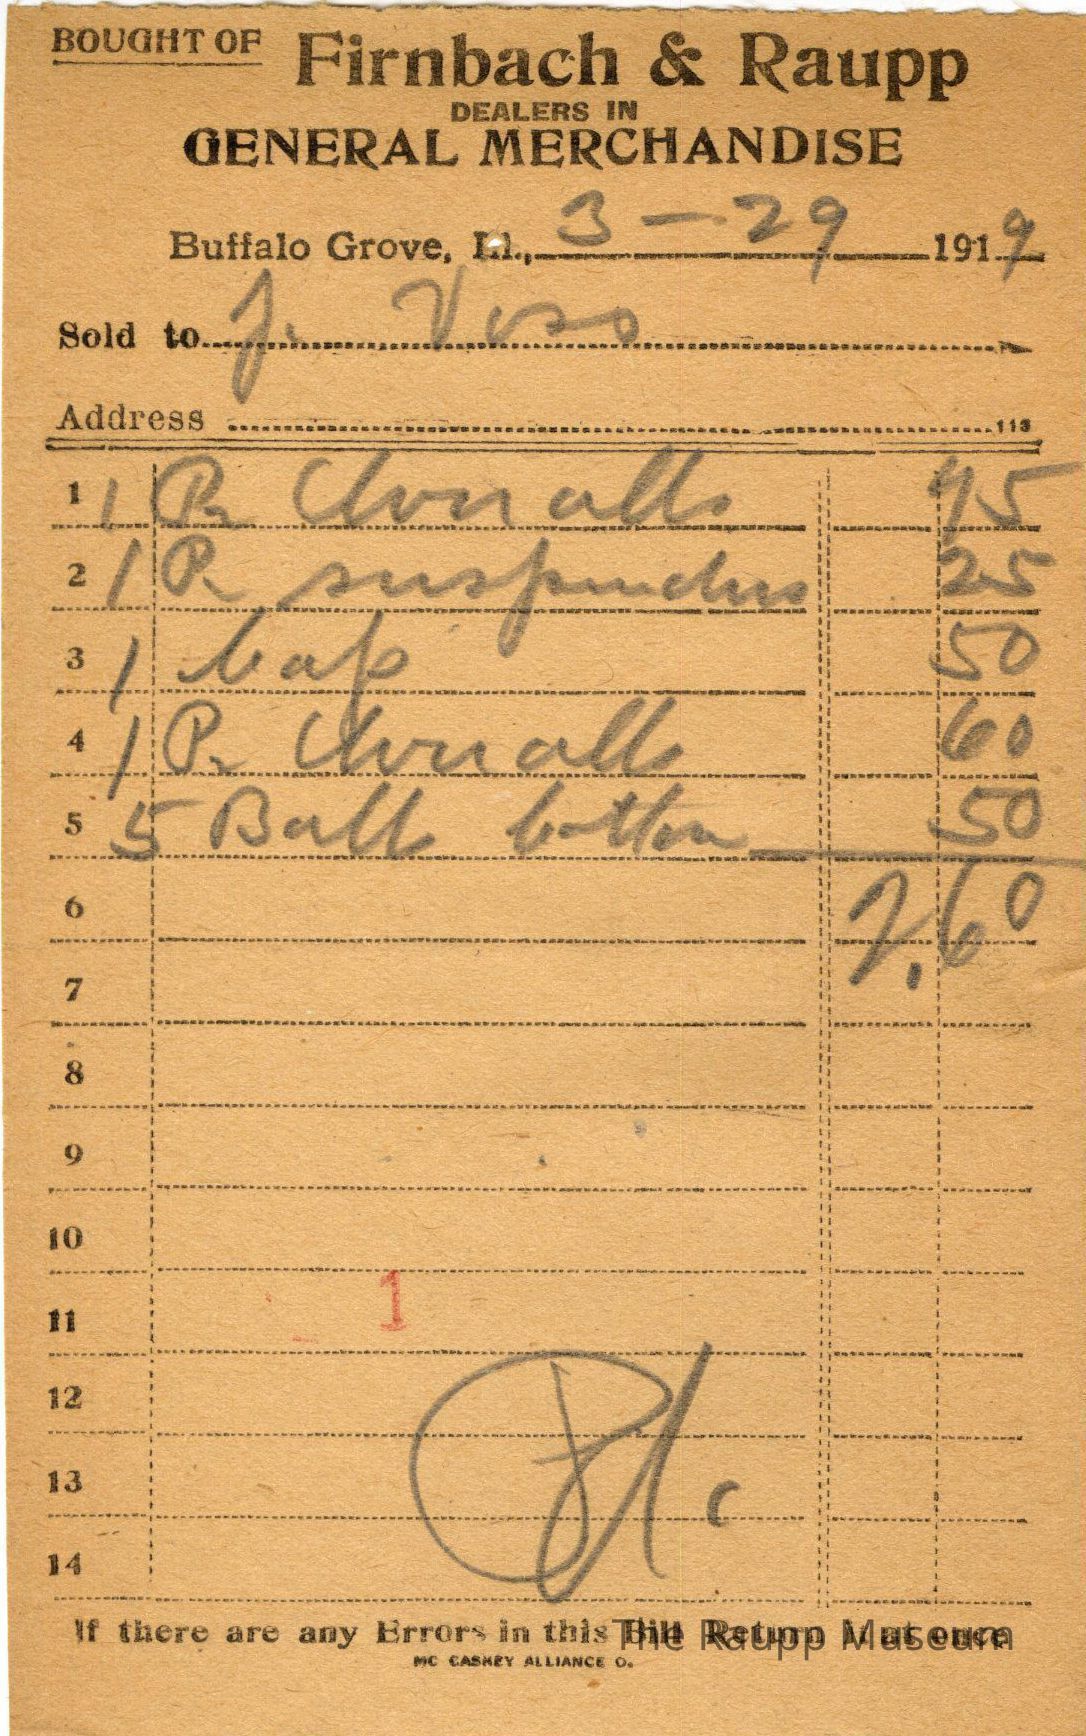 BOUGHT OF Firnbach & Raupp
DEALERS IN
GENERAL MERCHANDISE
Buffalo Grove, Ill., 3 - 29 1919
Sold to J. Voss
Address 113
1 1 Pr Overalls 75
2 1 Pr suspenders 25
3 1 Cap 50
4 1 Pr Overalls 60
5 5 Balls Cotton 50
6 2.60
7
8
9
10
11 1
12
13
14
If there are any Errors in this Bill Return it at once
The Raupp Museum
MC CASKEY ALLIANCE O.